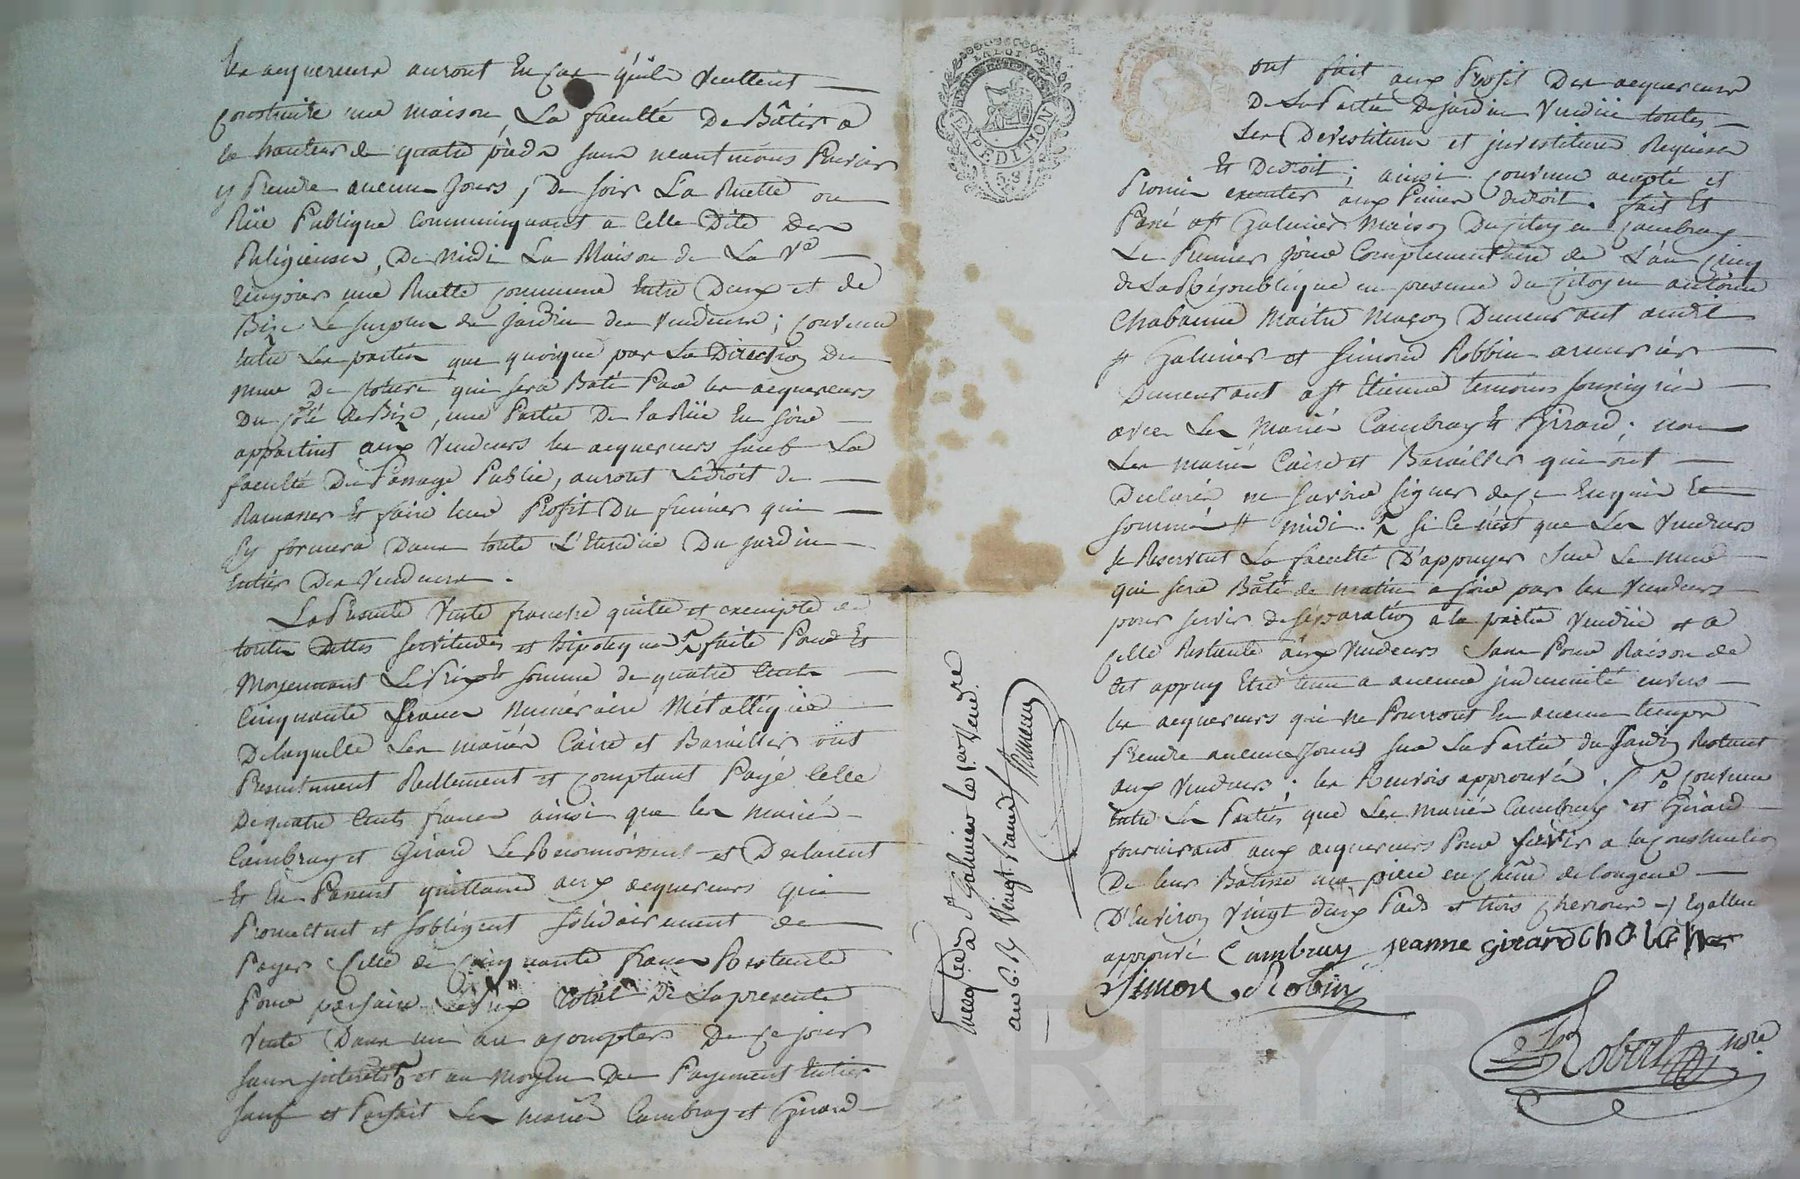 les acquereurs auront En Cas qu'ils veullent
construire une maison, La faculté De Bâtir a
la hauteur de quatre pieds sans neantmoins Pouvoir
y Prendre aucun Jours, De soir La Ruette ou
Rüe Publique Communiquant a Celle Dite Des
Religieuses, De midi La Maison de La Ve
une Ruette commune Entre Deux et de
Bize Le surplus du Jardin des vendeurs ; convenu
Entre Les parties que quoique par La Direction Du
mur De cloture qui sera Bati Par les acquereurs
Du côté de Bize, une Partie De la Rüe En soir
appartint aux vendeurs les acquereurs sauf La
faculté Du Passage Public, auront Le droit de
Ramasser Et faire leur Profit Du fumier qui
sy formera Dans toute L'Etendüe Du jardin
Entier Des vendeurs.
La Presente Vente franche quitte et exempte de
toutes Dettes servitudes et hipoteques faite Pour Et
Moyennant Le Prix et somme de quatre Cents
Cinquante francs Numéraire Métallique
De laquelle Les mariés Caire et Barallier ont
Presentement Reellement et comptant Payé Celle
De quatre Cents francs ainsi que les mariés
Cambray et Girard Le Reconnoissent et Declarent
Et En Passent quittance aux acquereurs qui
Promettent et sobligent solidairement de
Payer Celle de Cinquante francs Restante
Pour parfaire Le Prix total De La presente
Vente Dans un an a compter De Ce jour
sans interets et au moyen Du Payement Entier
sauf et Parfait Les mariés Cambray et Girard
EXPEDITION
Enregistré a St Galmier le 1er Vendre
an 6. Rs Vingt francs
ont fait aux Profit Des acquereurs
De La Partie De jardin Vendüe toutes
Les Devestitures et investitures Requises
Et De droit ; ainsi convenu accepté et
Promis executer aux Peines de droit. fait Et
Passé a St Galmier Maison Du citoyen Cambray
Le Premier jour Complementaire de L'an Cinq
de La République en presence du Citoyen antoine
Chabanne Maitre Maçon Demeurant audit
St Galmier et Simond Robbin armurier
Demeurant a St Etienne temoins soussignés
avec Les Mariés Cambray Et Girard ; non
Les mariés Caire et Barallier qui ont
Declaré ne savoir signer de ce Enquis Et
sommés midi. si Ce n'est que Les vendeurs
se Reservent La faculté D'appuyer sur Le mur
qui sera Bâti de matin a soir par les Vendeurs
pour servir de séparation à la partie Vendüe et a
Celle Restante aux Vendeurs sans Pour Raison de
cet appuy Etre tenu a aucune indemnité envers
les acquereurs qui ne Pourront En aucun temps
Prendre aucuns Jours sur La Partie du Jardin Restant
aux vendeurs ; les Renvois approuvés. convenu
Entre Les Parties que Les mariés Cambray et Girard
fourniront aux acquereurs Pour servir a la construction
De leur Batisse une piece en chêne de longeur
D'Environ Vingt deux Pieds et trois chevrons Egallem
approuvé Cambray jeanne girard chaban
Simon Robin
Robert nore